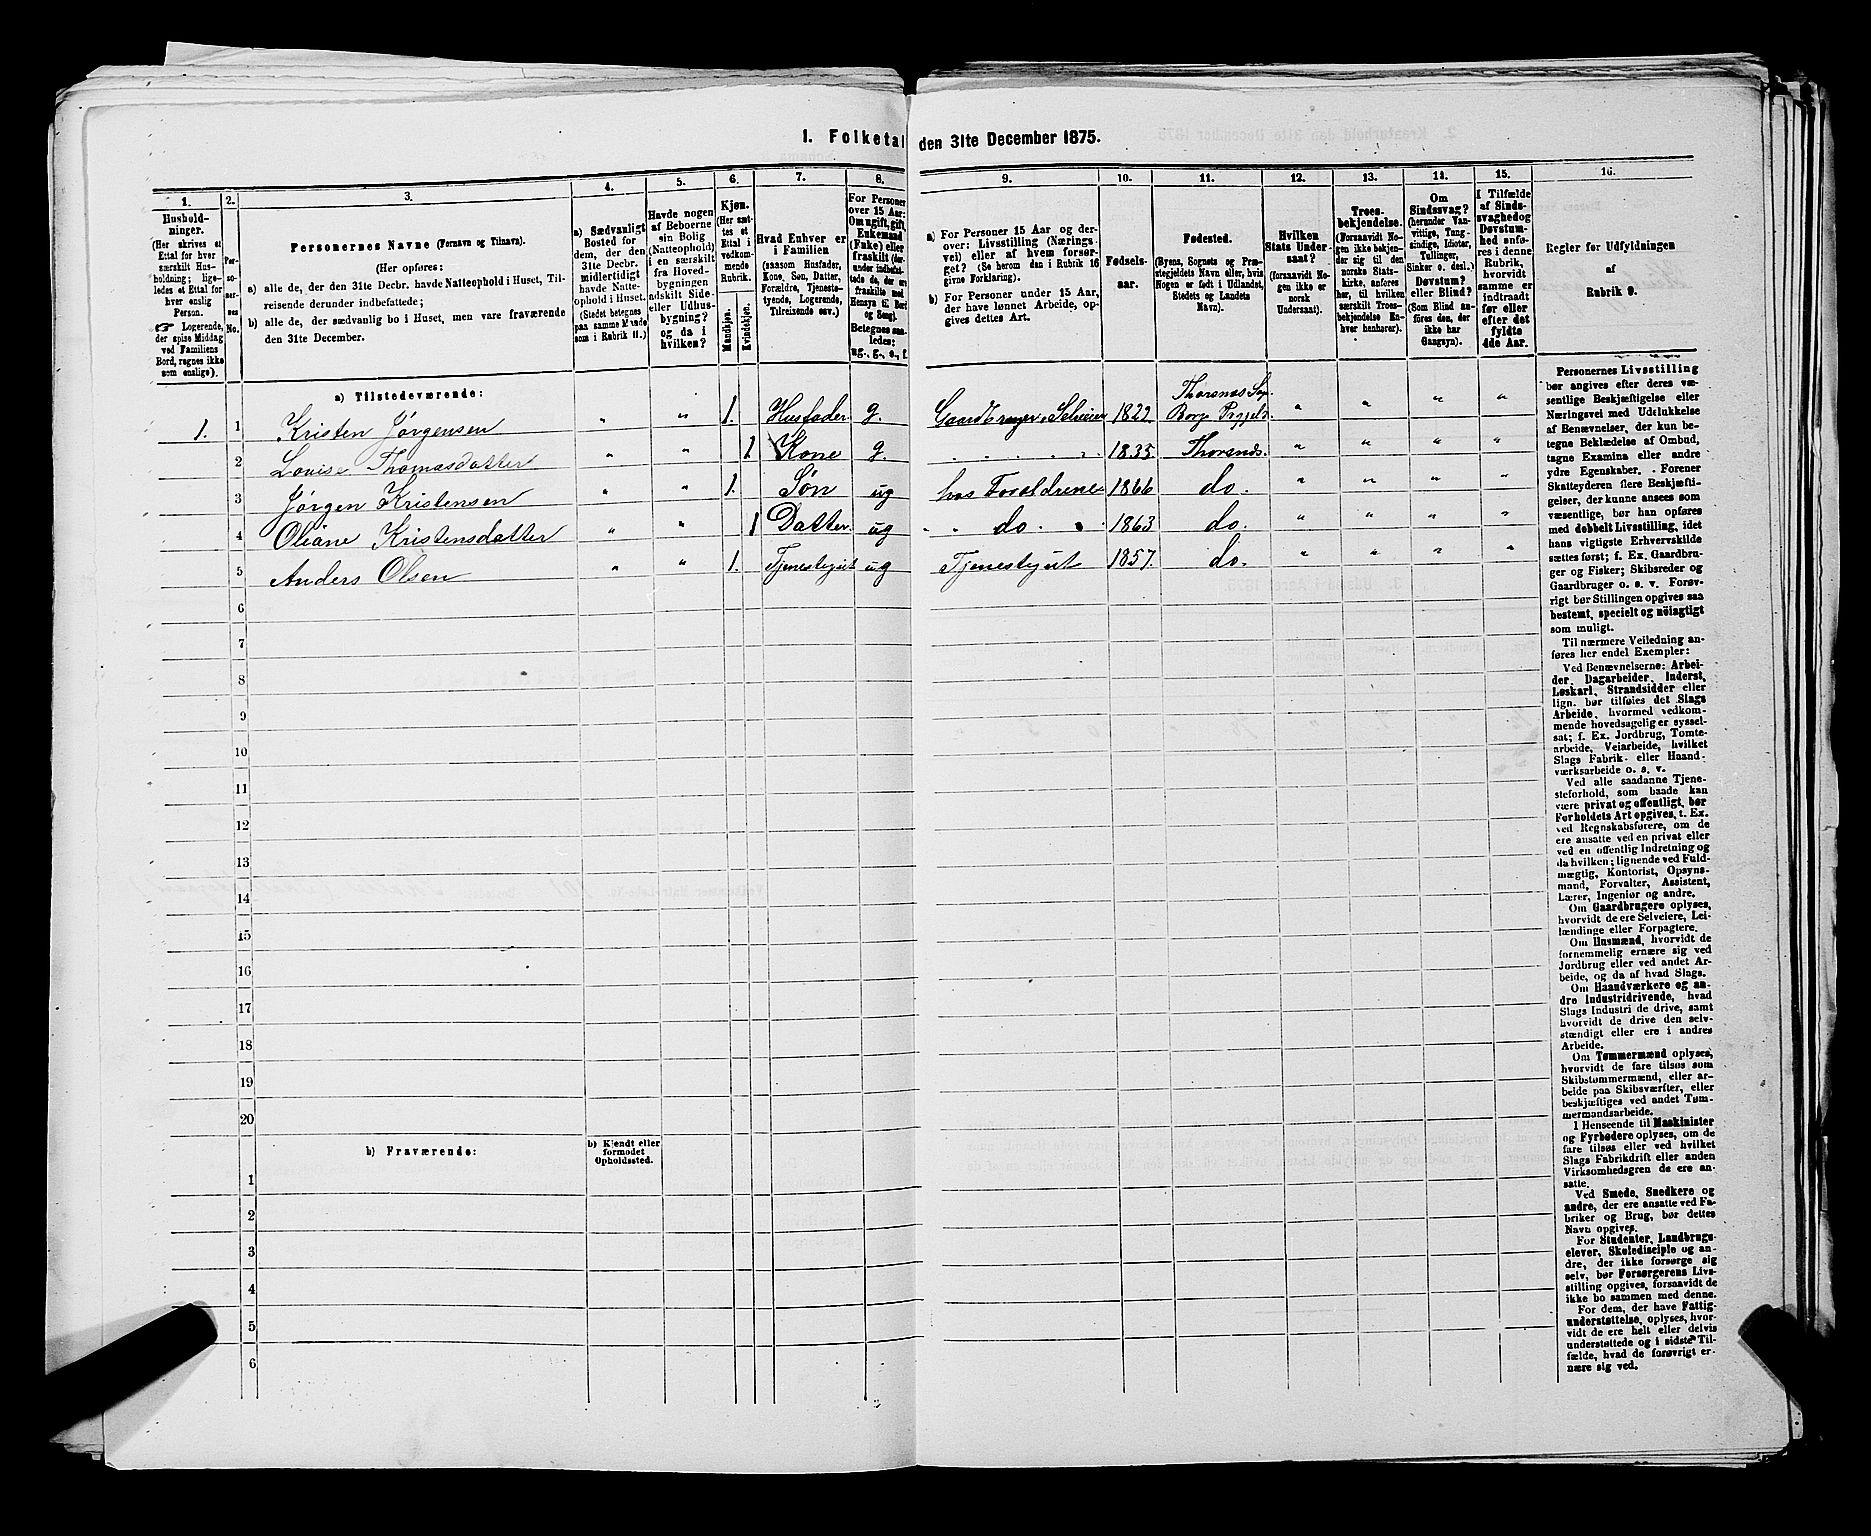 1. Folketal den 31te December 1875.
1. 2. 3. 4. 5. 6. 7. 8. 9. 10. 11. 12. 13. 14. 15. 16.
Hushold-
ninger.
(Her skrives et
Ettal for hver
særskilt Hus-
holdning; lige-
ledes et Ettal for
hver enslig
Person.
☞ Logerende,
der spise Middag
ved Familiens
Bord, regnes ikke
som enslige).
Per-
so-
ner-
nes
No.
Personernes Navne (Fornavn og Tilnavn).
(Her opføres:
a) alle de, der den 31te Decbr. havde Natteophold i Huset, Til-
reisende derunder indbefattede;
b) alle de, der sædvanlig bo i Huset, men vare fraværende
den 31te December.
a) Sædvanligt
Bosted for
dem, der den
31te Decbr.
midlertidigt
havde Natte-
ophold i Huset.
(Stedet betegnes
paa samme Maade
som i Rubrik 11.)
Havde nogen
af Beboerne
sin Bolig
(Natteophold)
i en særskilt
fra Hoved-
bygningen
adskilt Side-
eller Udhus-
bygning?
og da i
hvilken?
Kjøn.
(Her sæt-
tes et
Ettal i
vedkom-
mende
Rubrik.
Mandkjøn.
Kvindekjøn.
Hvad Enhver er
i Familien
(saasom Husfader,
Kone, Søn, Datter,
Forældre, Tjeneste-
tyende, Logerende,
Tilreisende osv.)
For Personer
over 15 Aar:
Om ugift, gift,
Enkemand
(Enke) eller
fraskilt (der-
under indbefat-
tede de, der ere
fraskilte med
Hensyn til Bord
og Seng).
Betegnes saa-
ledes:
ug., g., e., f.
a) For Personer 15 Aar og der-
over: Livsstilling (Nærings-
vei) eller af hvem forsør-
get? (Se herom den i Rubrik 16
givne Forklaring).
b) For Personer under 15 Aar,
der have lønnet Arbeide, op-
gives dettes Art.
Fødsels-
aar.
Fødested.
(Byens, Sognets og Præ-
stegjeldets Navn eller, hvis
Nogen er født i Udlandet,
Stedets og Landets
Navn).
Hvilken
Stats Under-
saat?
(forsaavidt No-
gen ikke er
norsk
Undersaat).
Troes-
bekjendelse.
(Forsaavidt No-
gen ikke bekjen-
der sig til den
norske Stats-
kirke, anføres
her, til hvilken
særskilt Troes-
bekjendelse En-
hver henhører).
Om
Sindssvag?
(herunder Van-
vittige, Tung-
sindige, Idioter,
Tullinger,
Sinker o. desl.)
Døvstum?
eller Blind?
(Som Blind an-
føres den, der
ikke har
Gangsyn).
I Tilfælde
af Sinds-
svaghed og
Døvstum-
hed anfø-
res i denne
Rubrik,
hvorvidt
samme er
indtraadt
før eller
efter det
fyldte
4de Aar.
Regler for Udfyldningen
af
Rubrik 9.
a) Tilstedeværende:
1. 1 Kristen Jørgensen " " 1. Husfader g. Gaardbruger Selveier 1822 Borge " " " "
2 Louise Thomasdatter " " 1 Kone g. " " " " " 1835 " " " "
3 Jørgen Kristensen " " 1. Søn ug hos Foræeldrene 1866 do. " " " "
4 Oliane Kristensdatter " " 1 Datter ug " " do. 1863 do. " " " "
5 Anders Olsen " " 1. Tjenestegut ug Tjenestegut 1857. do. " " " "
6
7
8
9
10
11
12
13
14
15
16
17
18
19
20
b) Fraværende:
b) Kjendt eller
formodet
Opholdssted.
1
2
3
4
5
6
Personernes Livsstilling
bør angives efter deres væ-
sentlige Beskjæftigelse eller
Næringsvei med Udelukkelse
af Benævnelser, der kun be-
tegne Beklædelse af Ombud,
tagne Examina eller andre
ydre Egenskaber. Forener
Skatteyderen flere Beskjæfti-
gelser, der kunne ansees som
væsentlige, bør han opføres
med dobbelt Livsstilling, idet
hans vigtigste Erhvervskilde
sættes først; f. Ex. Gaardbru-
ger og Fisker; Skibsreder og
Gaardbruger o. s. v. Forøv-
rigt bør Stillingen opgives saa
bestemt, specielt og nöiagtigt
som muligt.
Til nærmere Veiledning an-
føres her endel Exempler:
Ved Benævnelserne: Arbei-
der, Dagarbeider, Inderst,
Løskarl, Strandsidder eller
lign. bør tilføies det Slags
Arbeide, hvormed vedkom-
mende hovedsagelig er syssel-
sat; f. Ex. Jordbrug, Tomte-
arbeide, Veiarbeide, hvilket
Slags Fabrik- eller Haand-
værksarbeide o. s. v.
Ved alle saadanne Tjene-
steforhold, som baade kan
være privat og offentligt, bør
Forholdets Art opgives, t. Ex.
ved Regnskabsførere, om de
ere ansatte ved en privat eller
ved en offentlig Indretning og
da hvilken; lignende ved Fuld-
mægtig, Kontorist, Opsyns-
mand, Forvalter, Assistent,
Lærer, Ingeniør og andre.
Om Gaardbrugere oplyses,
hvorvidt de ere Selveiere, Lei-
lændinge eller Forpagtere.
Om Husmænd, hvorvidt de
fornemmelig ernære sig ved
Jordbrug eller ved andet Ar-
beide, og da af hvad Slags.
Om Haandværkere og an-
dre Industridrivende, hvad
Slags Industri de drive, samt
hvorvidt de drive den selv-
stændigt eller ere i andres
Arbeide.
Om Tømmermænd oplyses,
hvorvidt de fare tilsøs som
Skibstømmermænd, eller ar-
beide paa Skibsværfter, eller
beskjæftiges ved andet Tøm-
mermandsarbeide.
I Henseende til Maskinister
og Fyrbødere oplyses, om de
fare tilsøs eller ved hvilket
Slags Fabrikdrift eller anden
Virksomhedsgren de ere an-
satte.
Ved Smede, Snedkere og
andre, der ere ansatte ved Fa-
briker og Brug, bør dettes
Navn opgives.
For Studenter, Landbrugs-
elever, Skoledisciple og an-
dre, der ikke forsørge sig
selv, bør Forsørgerens Livs-
stilling opgives, forsaavidt de
ikke bo sammen med denne.
For dem, der have Fattig-
understøttelse, oplyses, hvor-
vidt de ere helt eller delvis
understøttede og i sidste Til-
fælde, hvad de forøvrigt er-
nære sig ved.